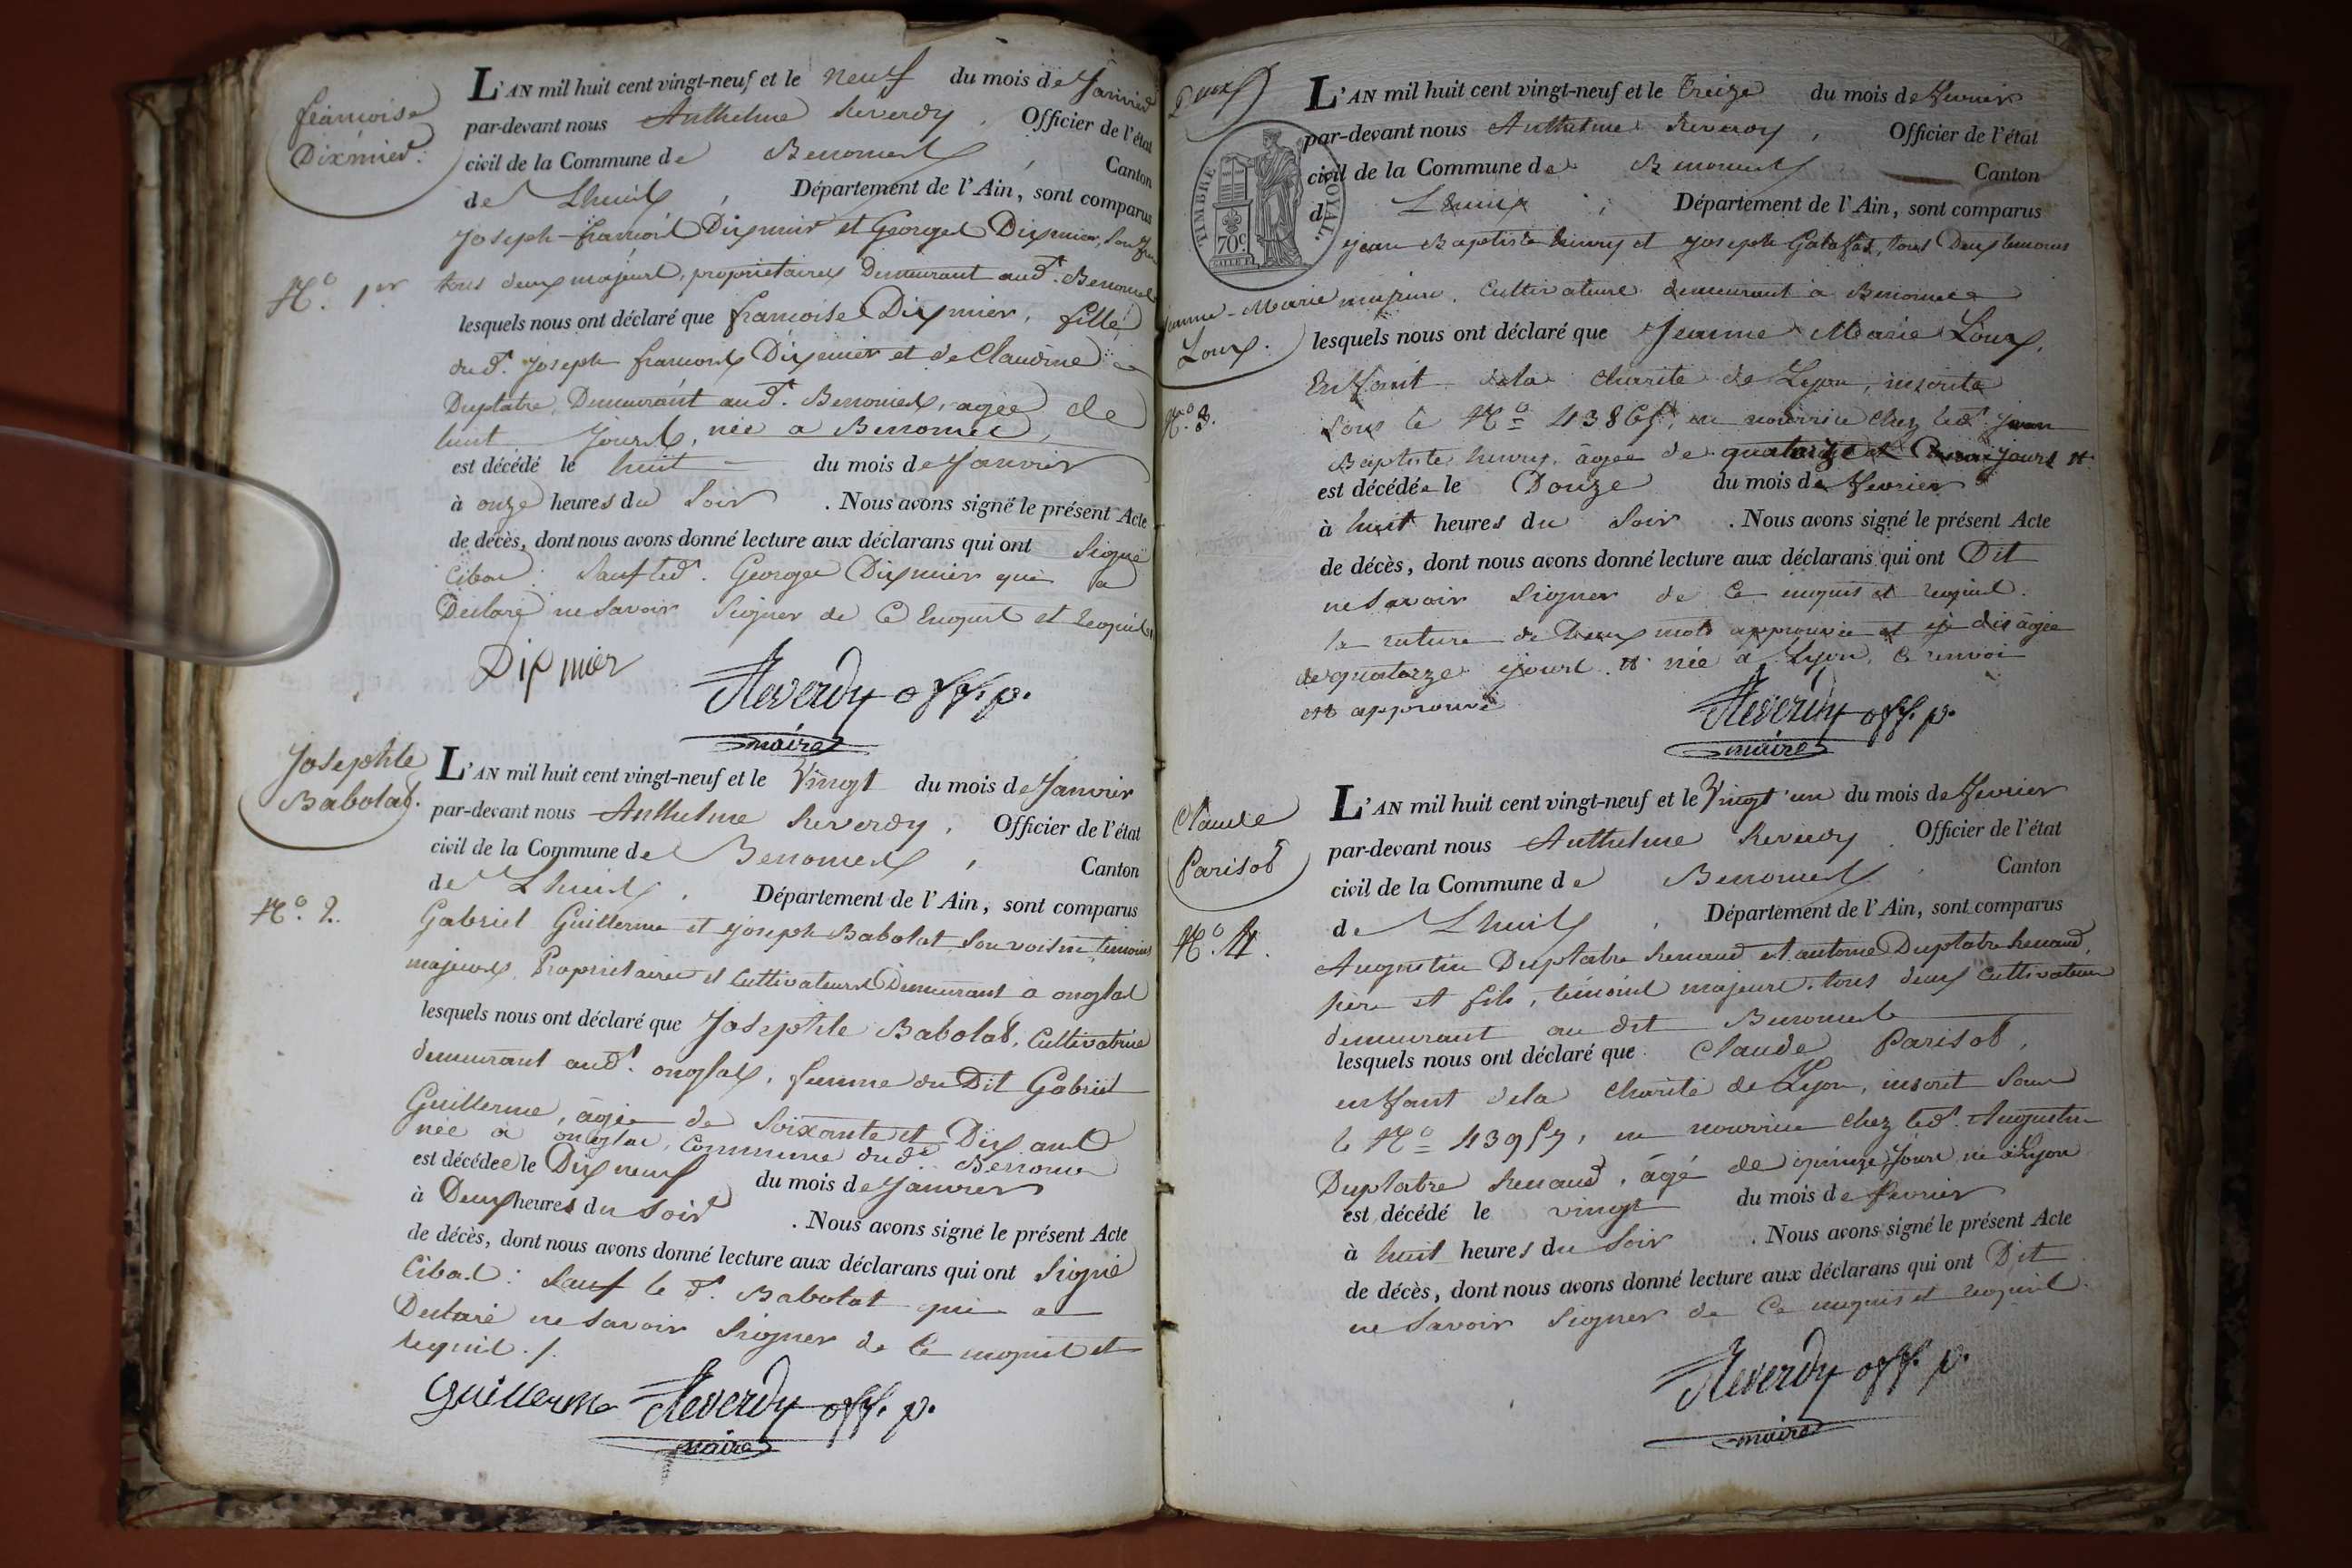 françoise
Dixmier.
N.o 1er
L'AN mil huit cent vingt-neuf et le neuf du mois de Janvier
par-devant nous Anthelme Reverdy, Officier de l'état
civil de la Commune de Benonces, Canton
de Lhuis, Département de l'Ain, sont comparus
Joseph-françois Dixmier et Georges Dixmier, son
tous deux majeurs, propriétaires demeurant aud.t Benonces
lesquels nous ont déclaré que françoise Dixmier, fille
dud.t Joseph françois Dixmier et de Claudine
Duplatre, Demeurant aud.t Benonces, agée de
huit Jours, née a Benonces
est décédé le huit du mois de Janvier
à onze heures du Soir. Nous avons signé le présent Acte
de décès, dont nous avons donné lecture aux déclarans qui ont Signé
Sauf led.t George Dixmier qui a
Déclaré ne Savoir Signer de ce enquis et requis
Dixmier
Reverdy off. p.
maire
Josephte
Babolat.
N.o 2.
L'AN mil huit cent vingt-neuf et le Vingt du mois de Janvier
par-devant nous Anthelme Reverdy, Officier de l'état
civil de la Commune de Benonces, Canton
de Lhuis, Département de l'Ain, sont comparus
Gabriel Guillerme et Joseph Babolat son voisin, témoins
majeurs, Propriétaires et Cultivateurs Demeurant à onglas
lesquels nous ont déclaré que Josephte Babolat, Cultivatrice
demeurant aud.t onglas, femme du Dit Gabriel
Guillerme, âgée de Soixante et Dix ans
née a onglas, Commune dud.t Benonces
est décédée le Dix neuf du mois de Janvier
à Deux heures du Soir. Nous avons signé le présent Acte
de décès, dont nous avons donné lecture aux déclarans qui ont Signé
Sauf le d.t Babolat qui a
Déclaré ne Savoir Signer de ce enquis et
requis ./.
Guillerme Reverdy off. p.
maire
Deux
TIMBRE ROYAL.
70c
Jeanne-Marie
Loux.
N.o 3.
L'AN mil huit cent vingt-neuf et le Treize du mois de fevrier
par-devant nous Anthelme Reverdy, Officier de l'état
civil de la Commune de Benonces Canton
d Lhuis, Département de l'Ain, sont comparus
Jean Baptiste henry et Joseph tous Deux temoins
majeurs, Cultivateurs demeurant à Benonces
lesquels nous ont déclaré que Jeanne Marie Loux,
Enfant dela charité de Lyon, inscrite
sous le N.o en nourrice chez led.t jean
Baptiste henry, âgée de quatorze jours
est décédée le Douze du mois de fevrier
à huit heures du Soir. Nous avons signé le présent Acte
de décès, dont nous avons donné lecture aux déclarans qui ont Dit
ne Savoir Signer de ce enquis et requis.
la rature de Deux mots approuvée et je dis âgée
de quatorze jours née à Lyon, ce renvoi
est approuvé
Reverdy off. p.
maire
Claude
Parisot
N.o 4.
L'AN mil huit cent vingt-neuf et le Vingt un du mois de fevrier
par-devant nous Anthelme Reverdy Officier de l'état
civil de la Commune de Benonces, Canton
de Lhuis, Département de l'Ain, sont comparus
Augustin Duplatre Renaud et antoine Duplatre Renaud,
père et fils, témoins majeurs, tous deux cultivateurs
demeurant au dit Benonces
lesquels nous ont déclaré que Claude Parisot,
enfant dela charité de Lyon, inscrit sous
le N.o 43957, en nourrice chez led.t Augustin
Duplatre Renaud, âgé de quinze Jours né à Lyon
est décédé le vingt du mois de fevrier
à huit heures du Soir. Nous avons signé le présent Acte
de décès, dont nous avons donné lecture aux déclarans qui ont Dit
ne Savoir Signer de Ce enquis et requis.
Reverdy off. p.
maire